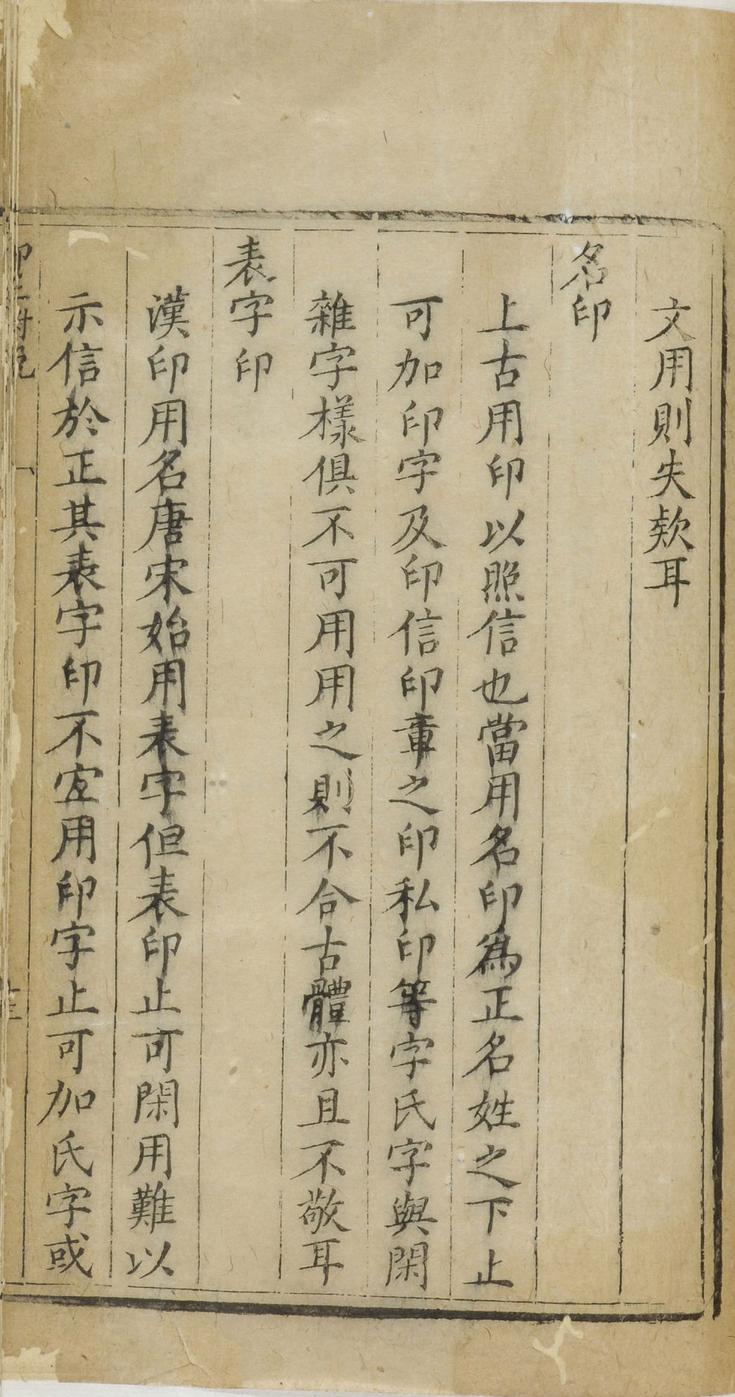 文用則失欵耳
名印
上古用印以照信也當用名印爲正名姓之下止
可加印字及印信印章之印私印等字氏字與閑
雜字樣俱不可用用之則不合古體亦且不敬耳
表字印
漢印用名唐宋始用表字但表印止可閑用難以
示信於正其表字印不宜用印字止可加氏字或